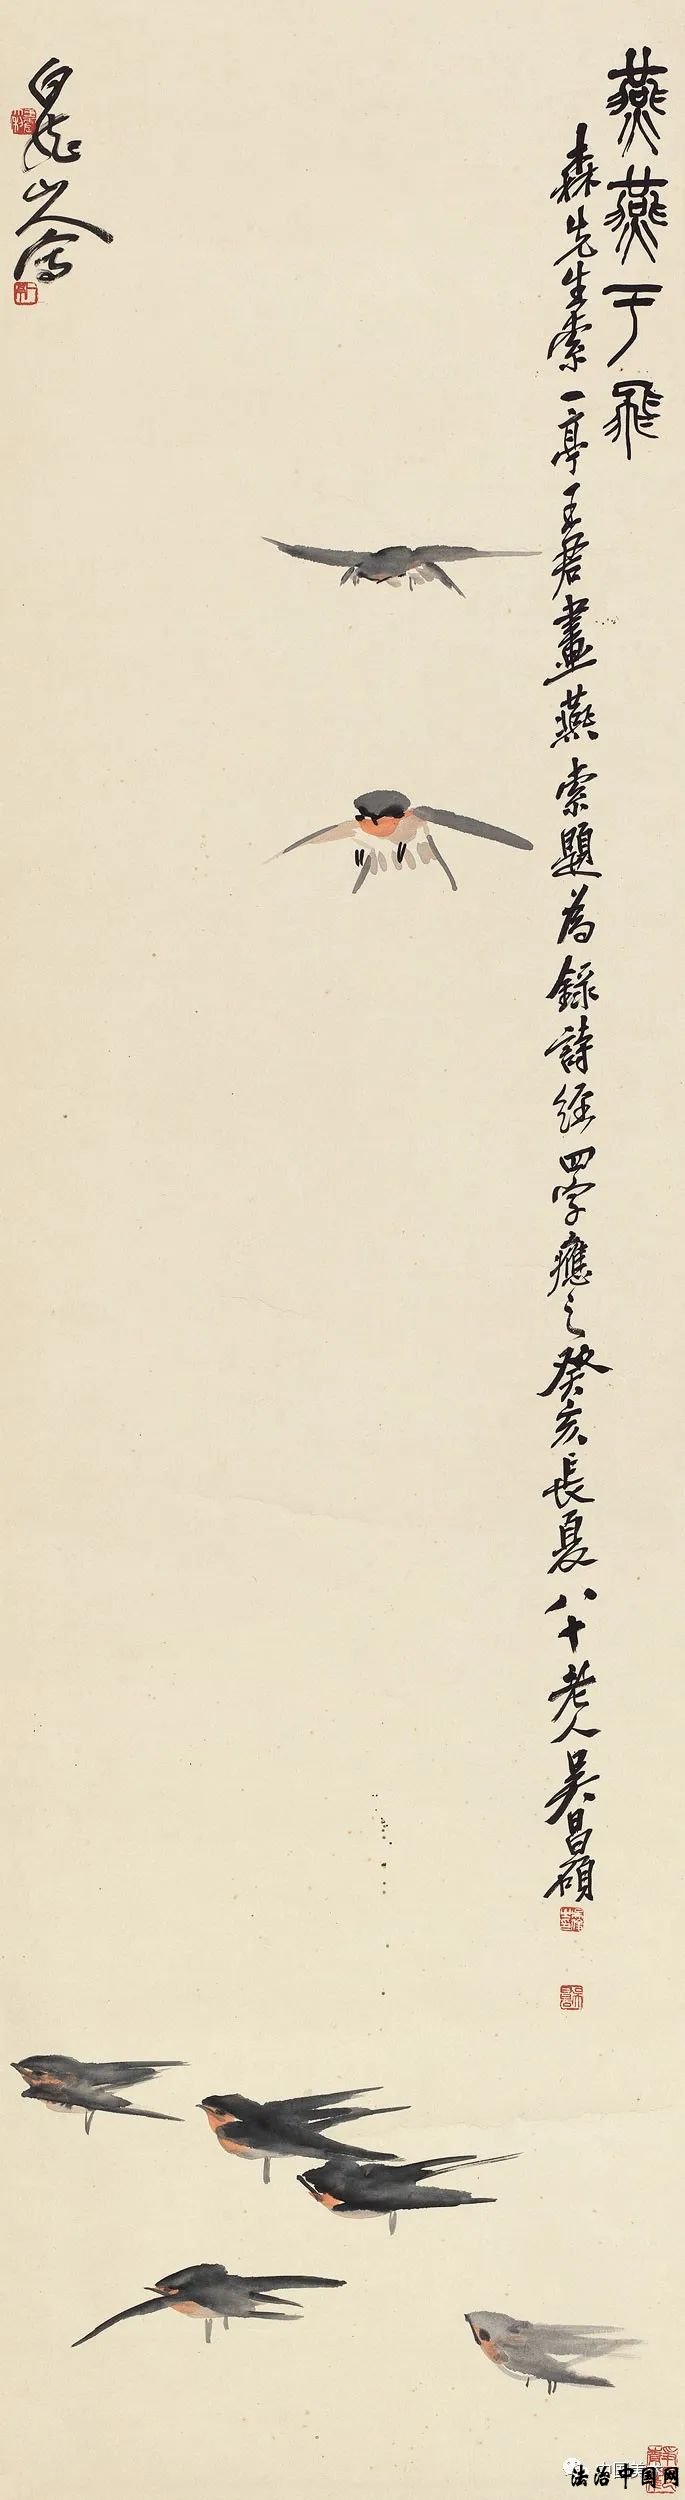 燕燕于飛
森先生索一亭王君畫燕索題為錄詩經四字應之癸亥長夏八十老人吳昌碩
白龍山人寫
法治中国网